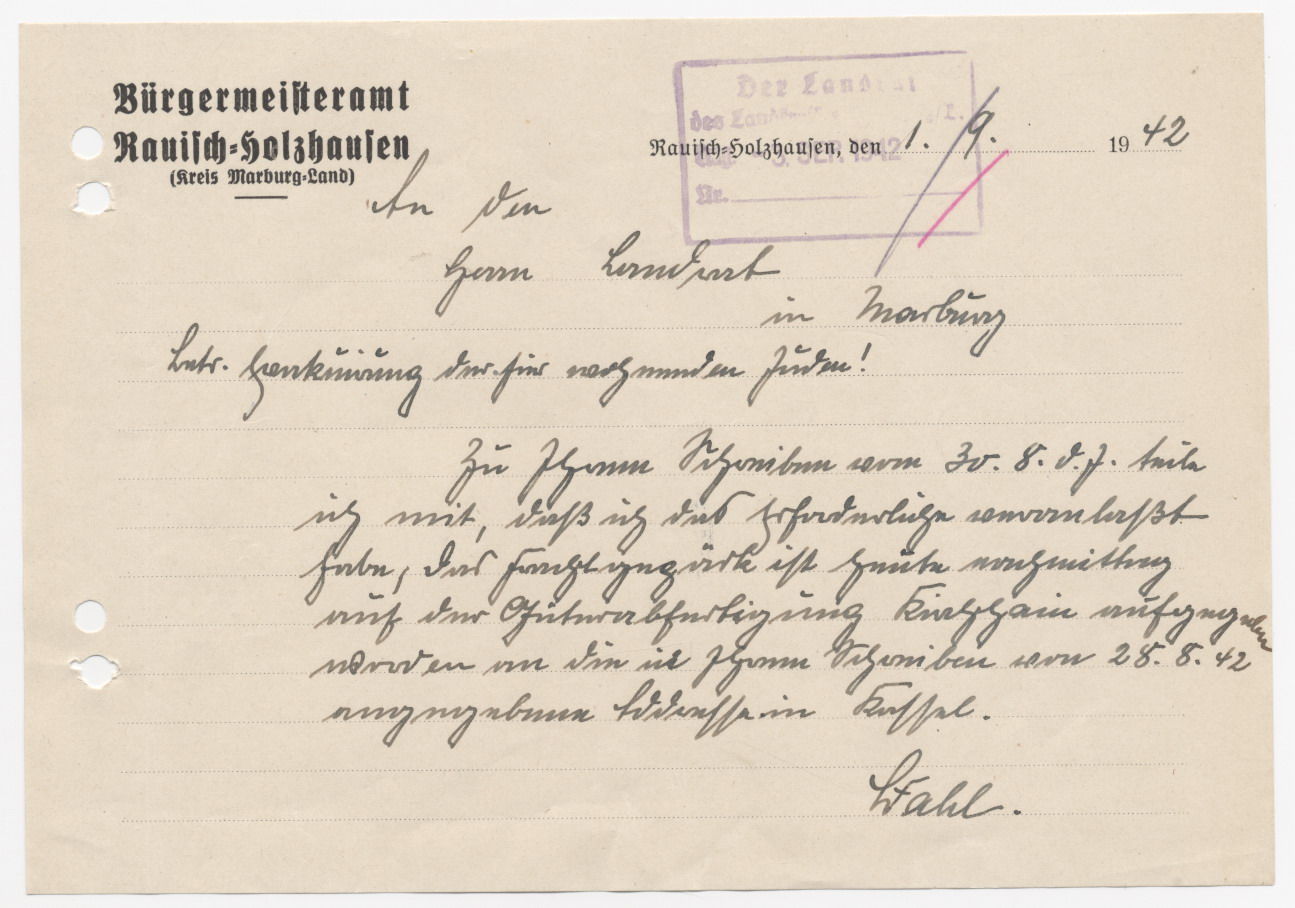 Bürgermeisteramt
Rauisch-Holzhausen
(Kreis Marburg-Land)
Der Landrat
des
3. SEP. 1942
Nr.
Rauisch-Holzhausen, den 1. 9. 1942
An den
Herrn Landrat
in Marburg
Betr. Evakuirung der hier wohnenden Juden!
Zu Ihrem Schreiben vom 30. 8. d. J. teile
ich mit, daß ich das Erforderliche veranlaßt
habe, das Frachtgepäck ist heute nachmittag
auf der Güterabfertigung Kirchhain aufgegeben
worden an die in Ihrem Schreiben von 28. 8. 42
angegebene Addresse in Kassel.